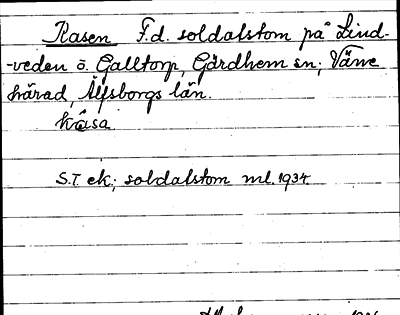 Rasen F.d. soldatstom på Lind-
-veden ö. Galltorp, Gärdhem sn; Väne
härad, Älfsborgs län.
S.T. ek; soldatstom ml. 1934.